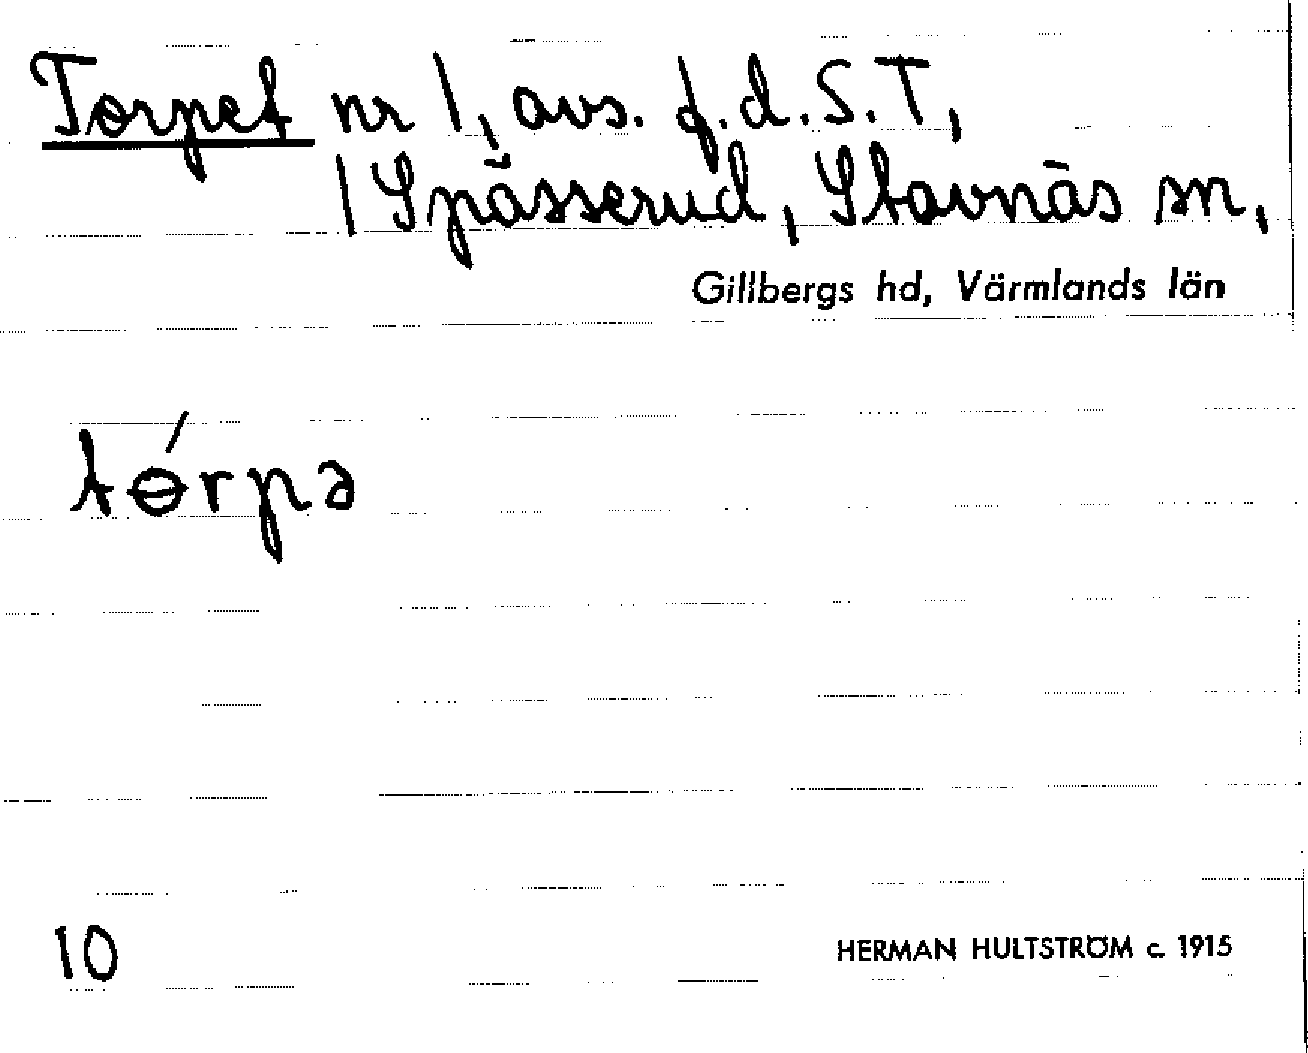 Torpet nr 1, avs. f.d. S.T,
1 Spässerud, Stavnäs sn,
Gillbergs hd, Värmlands län
tɵ́rpə
10
HERMAN HULTSTRÖM c. 1915